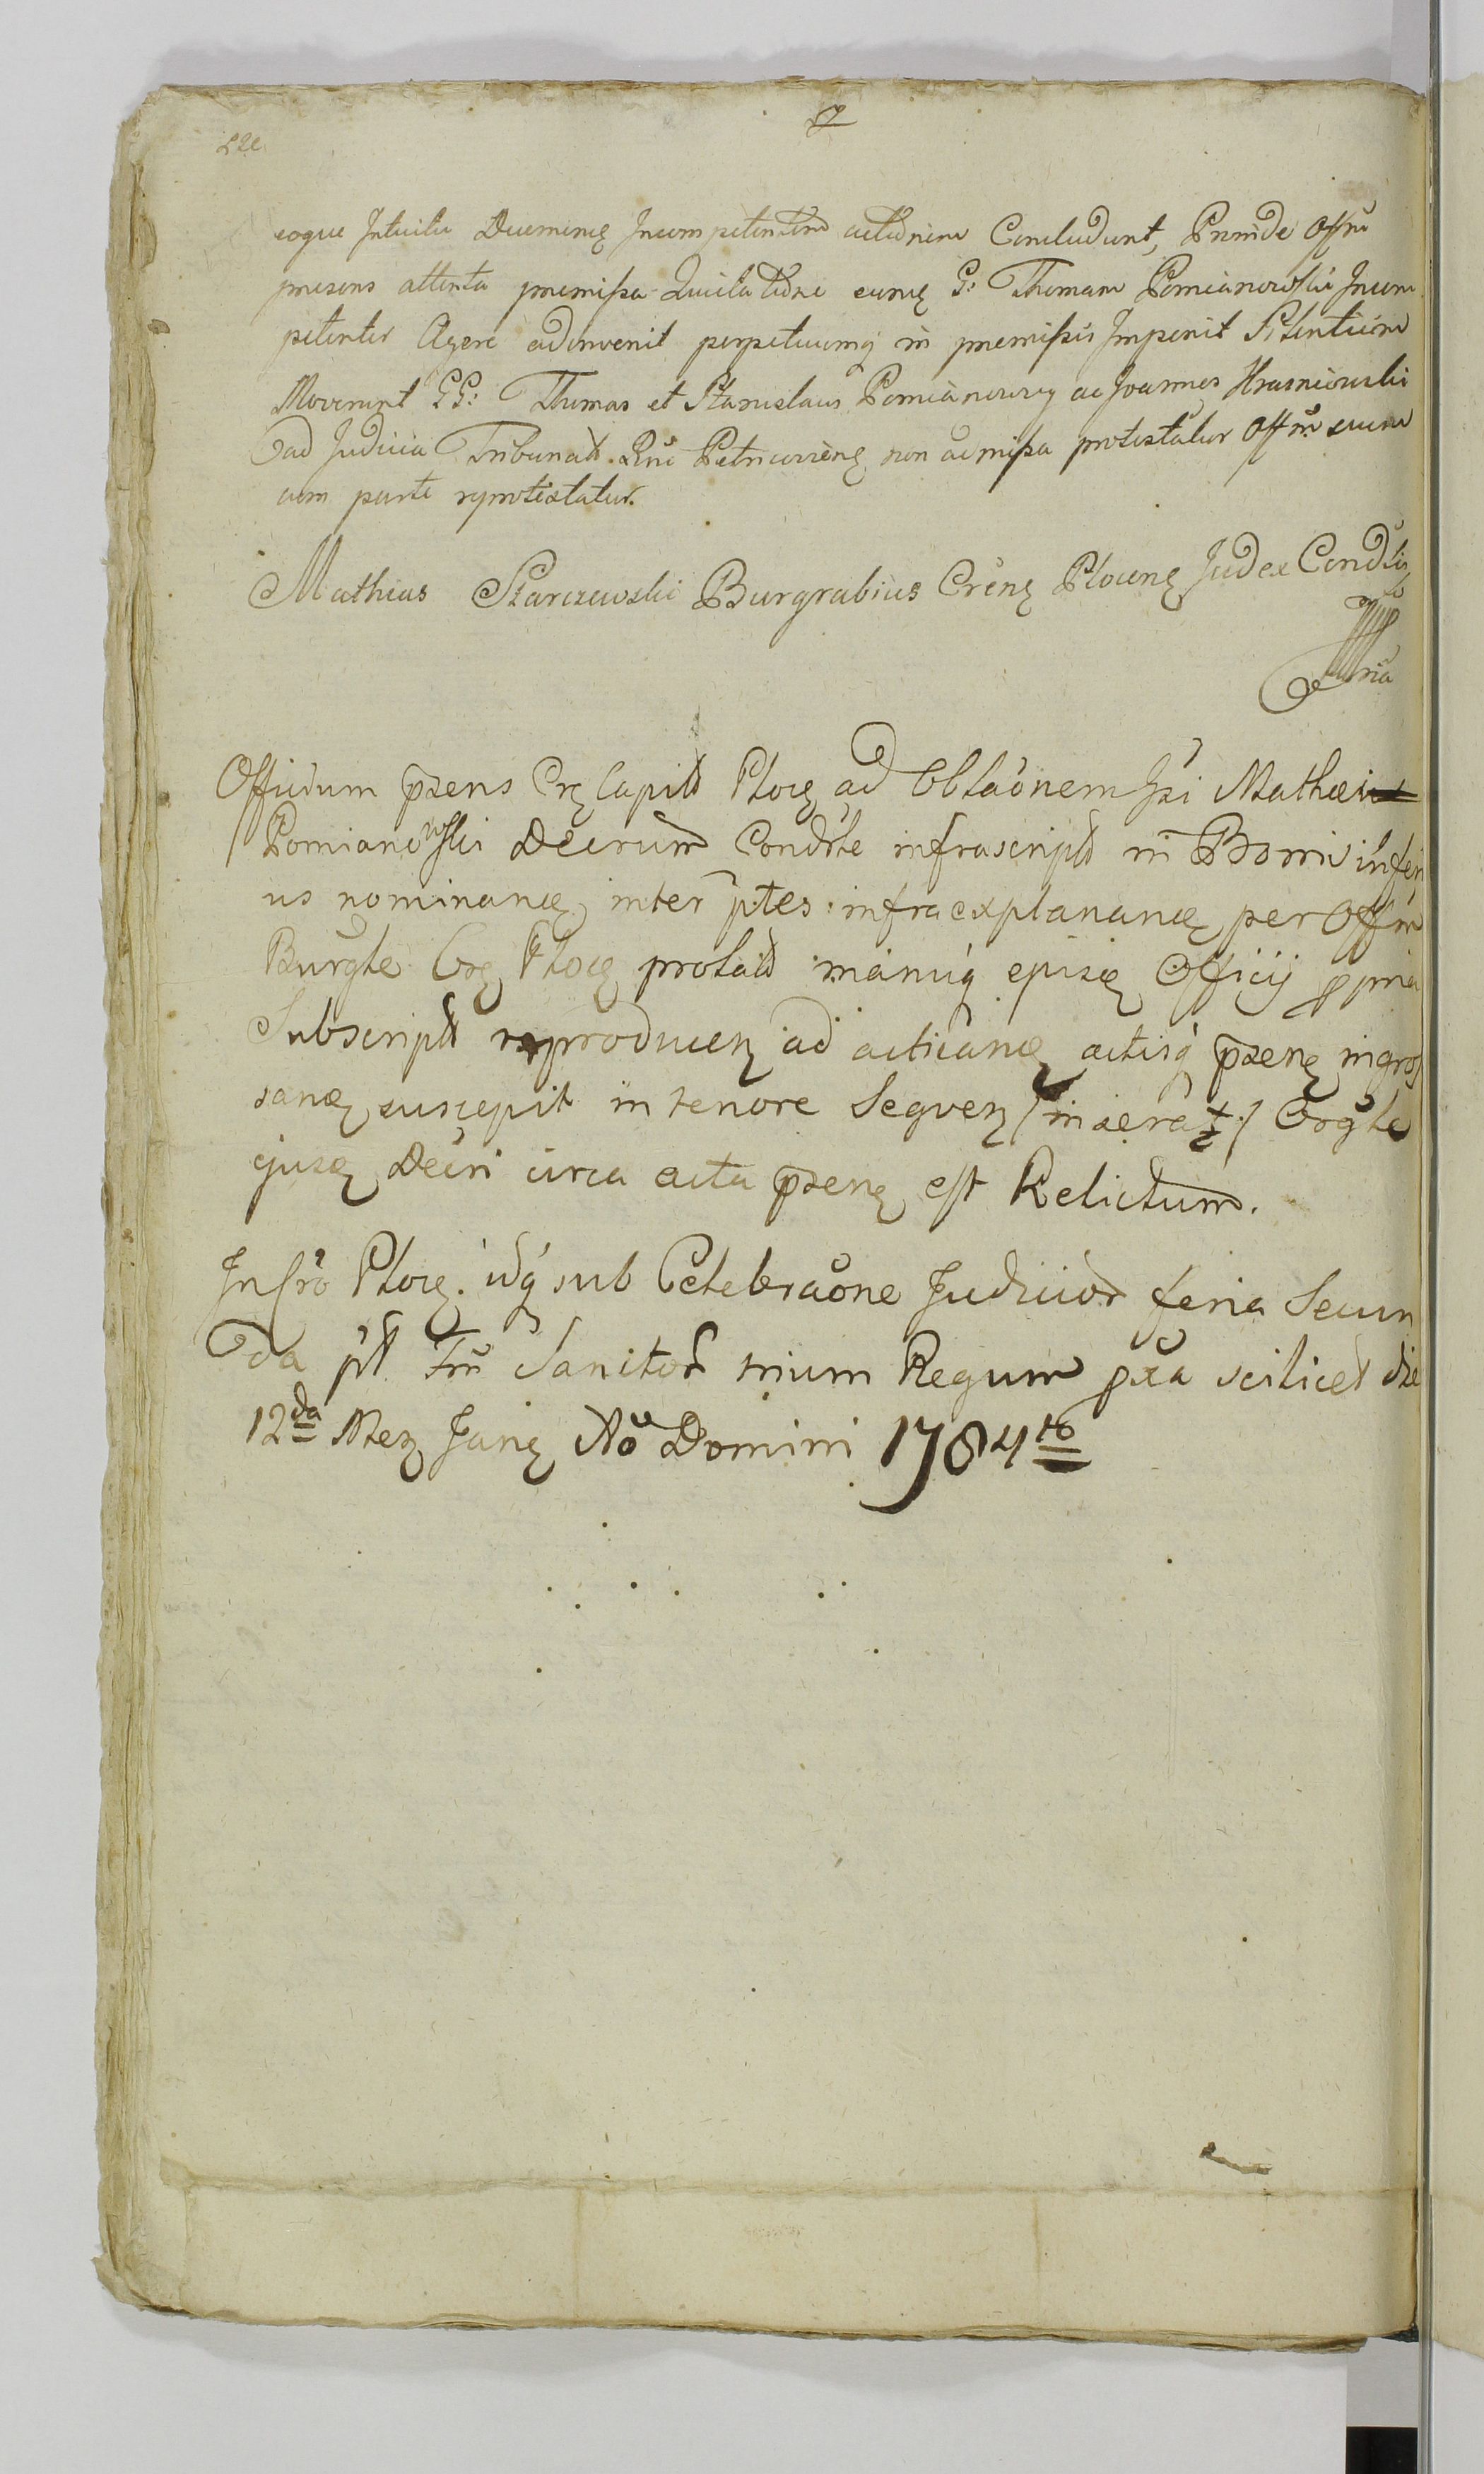 eoque Intuitu Ducmenę Incompetentem actionem Concludunt, Proinde Offm̃
presens attenta premißa Quietatione eunę G: Thomam Pomianowski Incom
petenter Agere adinvenit perpetuumq́ in premißis Imponit Silentium
Moverunt GG: Thomas et Stanislaus Pomianowscy ac Joannes
ad Judicia Tribunalt. Petricovienę non admißa protestatur Offm̃ cum
cum parte reprotestatur.
Mathias Starczewski Burgrabius Crēnę Plocenę Judex Condlis
Officium p̃sens Crę Capitt Płocę ad Oblaōnem Mathei
Pomianowski Decrum Condle infrascript in Bonis inferi
us nominanę inter p̃tes infraexplananę per Offm̃
Burgle Crę Płocę prolatt manuq́ ejusę Officij ppria
Subscriptt reproducen ad acticanę actisq́ p̃senę ingros
sanę suscepit in tenore Sequen /inserat:/ Orgle
ejusę Decri circa acta p̃senę est Relictum.
Płocę. idq́ sub Celebraōne Judiciorr feria Secun
da pt̃ fm̃ Sanctorr trium Regum pxa scilicet die
12da Mēn Janę Aō Domini 1784to